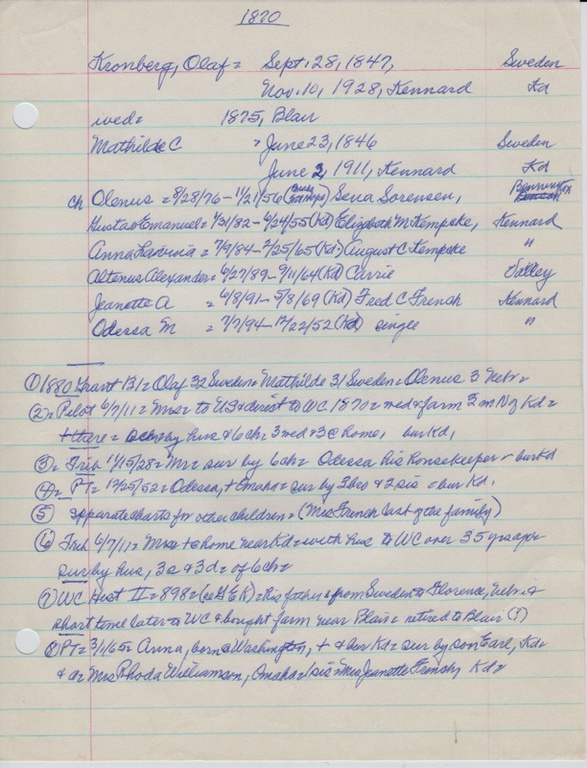 1870
Kronberg, Olaf = Sept. 28, 1847, Sweden
Nov. 10, 1928, Kennard Kd
wed = 1875, Blair
Mathilde C = June 23, 1846 Sweden
June 2, 1911, Kennard Kd
ch Olenus = 8/28/76 - 11/21/56 ( ) Sena Sorensen, Bennington
Gustav Emanuel = 1/31/82 - 9/24/55 (Kd) Elizabeth M Kempcke, Kennard
Anna = 7/9/84 - 2/25/65 (Kd) August C Kempcke "
Altenus Alexander = 6/27/89 - 9/11/64 (Kd) Carrie Valley
Jeanette A = 6/8/91 - 5/8/69 (Kd) Fred C French Kennard
Odessa M = 7/7/94 - 12/22/52 (Kd) single "
① 1880 Grant 131 = Olaf 32 Sweden = Mathilde 31 Sweden = Olenus 3 Nebr =
② = Pilot 6/7/11 = Mrs = to US & direct to WC 1870 = wed & farm 3 m N of Kd =
+ there = by hus & 6 ch = 3 wed & 3 @ home, bur Kd,
③ = Trib 11/15/28 = Mr = sur by 6 ch = Odessa his housekeeper - bur Kd
④ = PT = 12/25/52 = Odessa, + Omaha = sur by 3 bro & 2 sis = bur Kd.
⑤ separate charts for other children = (Mrs French last of the family)
⑥ Trib 6/7/11 = Mrs + @ home near Kd = with hus to WC over 35 yrs ago =
sur by hus, 3 s & 3 d = of 6 ch =
⑦ WC Hist II = 898 = (co G E K) = his father = from Sweden to Florence, Nebr &
short time later to WC & bought farm near Blair = retired to Blair (?)
⑧ PT = 3/1/65 = Anna, born @ Washington, + & bur Kd = sur by son Earl, Kd =
& d = Mrs Rhoda Williamson, Omaha = 1 sis = Mrs Jeanette French, Kd =